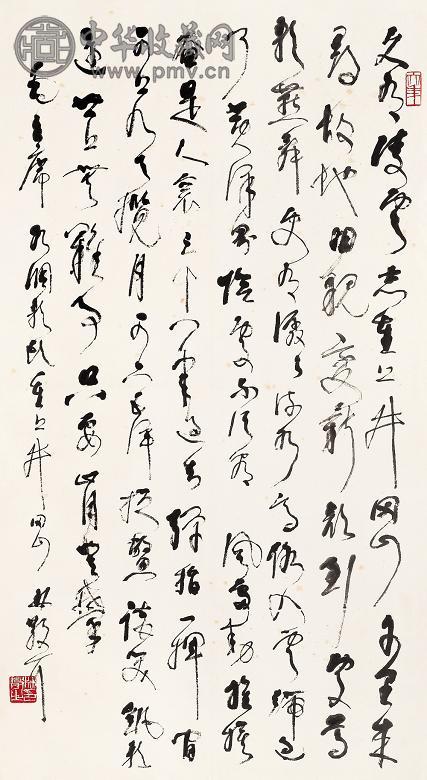 中华收藏网
www.pmv.cn
久有凌雲志重上井冈山千里来
寻故地旧貌变新颜到处莺
歌燕舞更有潺潺流水高路入雲端过
了黄洋界险处不须看风雷动旌旗
奋是人寰三十八年过去弹指一挥间
可上九天揽月可下五洋捉鳖谈笑凯歌
还世上无難事只要肯登攀
毛主席水调歌头重上井冈山林散耳